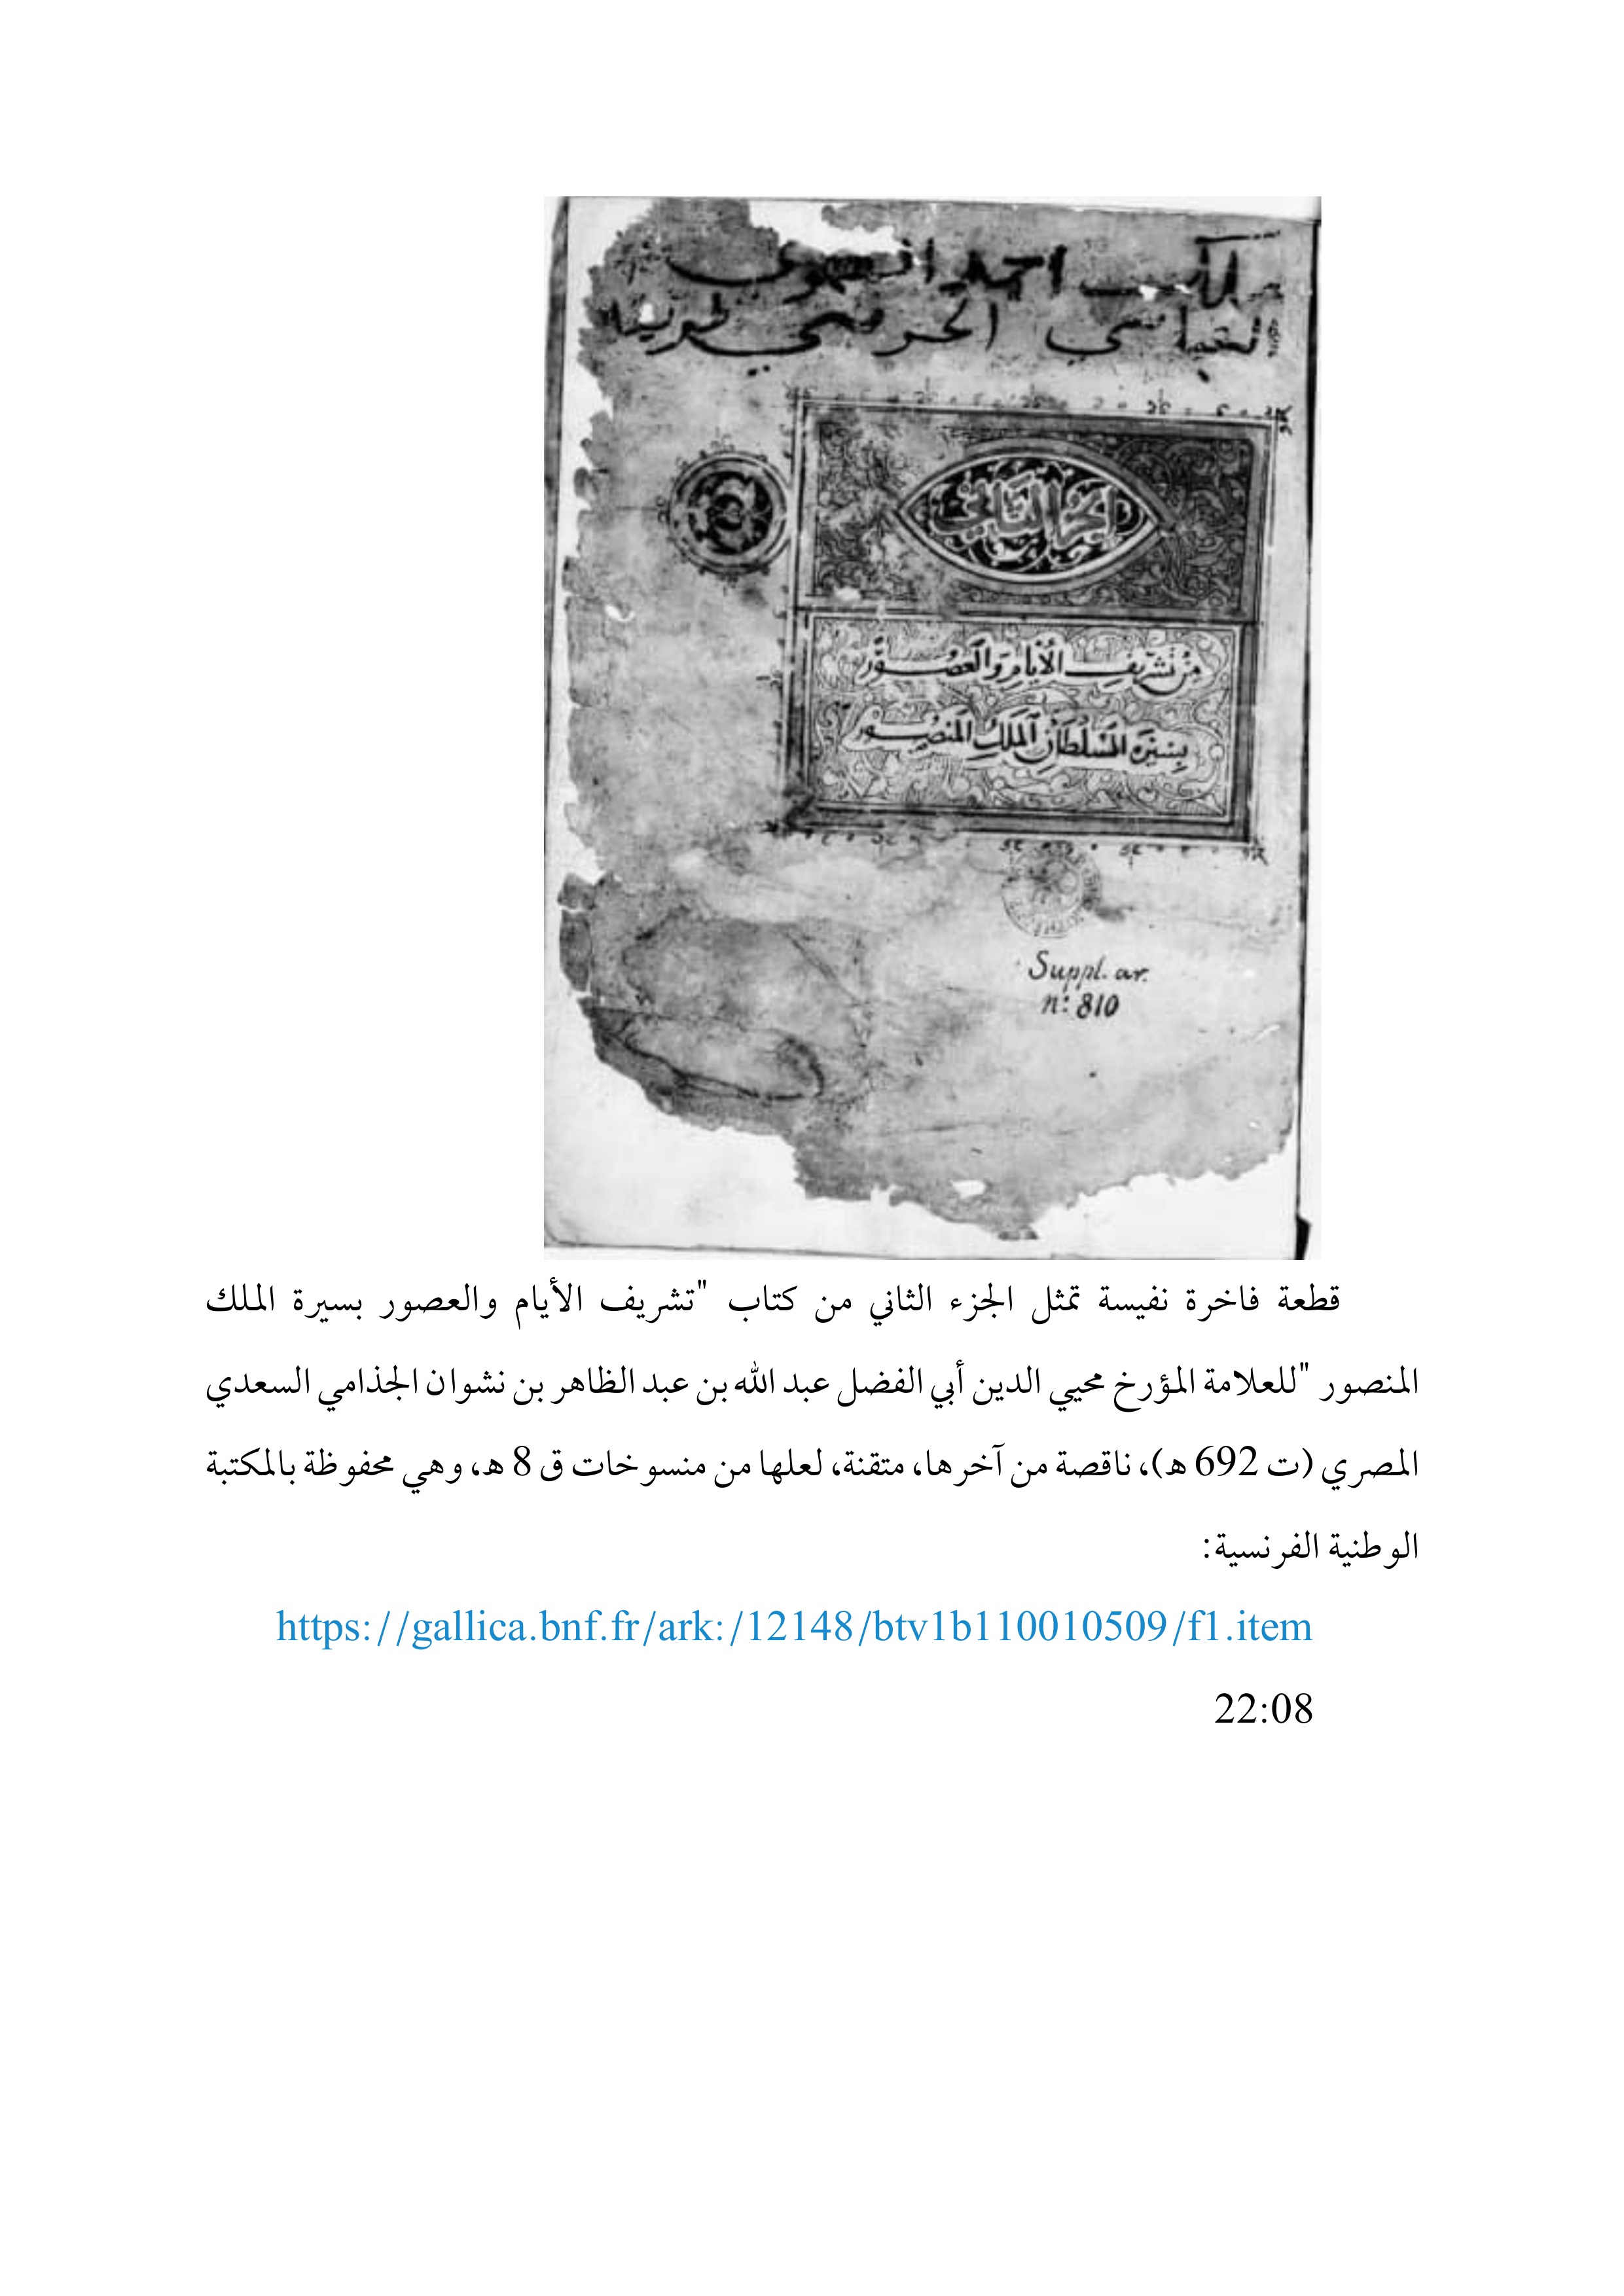 احمد
الجزء الثاني
من تشريف الأيام والعصور
بسيرة السلطان الملك المنصور
Suppl. ar.
n: 810
قطعة فاخرة نفيسة تمثل الجزء الثاني من كتاب "تشريف الأيام والعصور بسيرة الملك
المنصور "للعلامة المؤرخ محيي الدين أبي الفضل عبد الله بن عبد الظاهر بن نشوان الجذامي السعدي
المصري (ت 692 هـ)، ناقصة من آخرها، متقنة، لعلها من منسوخات ق 8 هـ، وهي محفوظة بالمكتبة
الوطنية الفرنسية:
https://gallica.bnf.fr/ark:/12148/btv1b110010509/f1.item
22:08